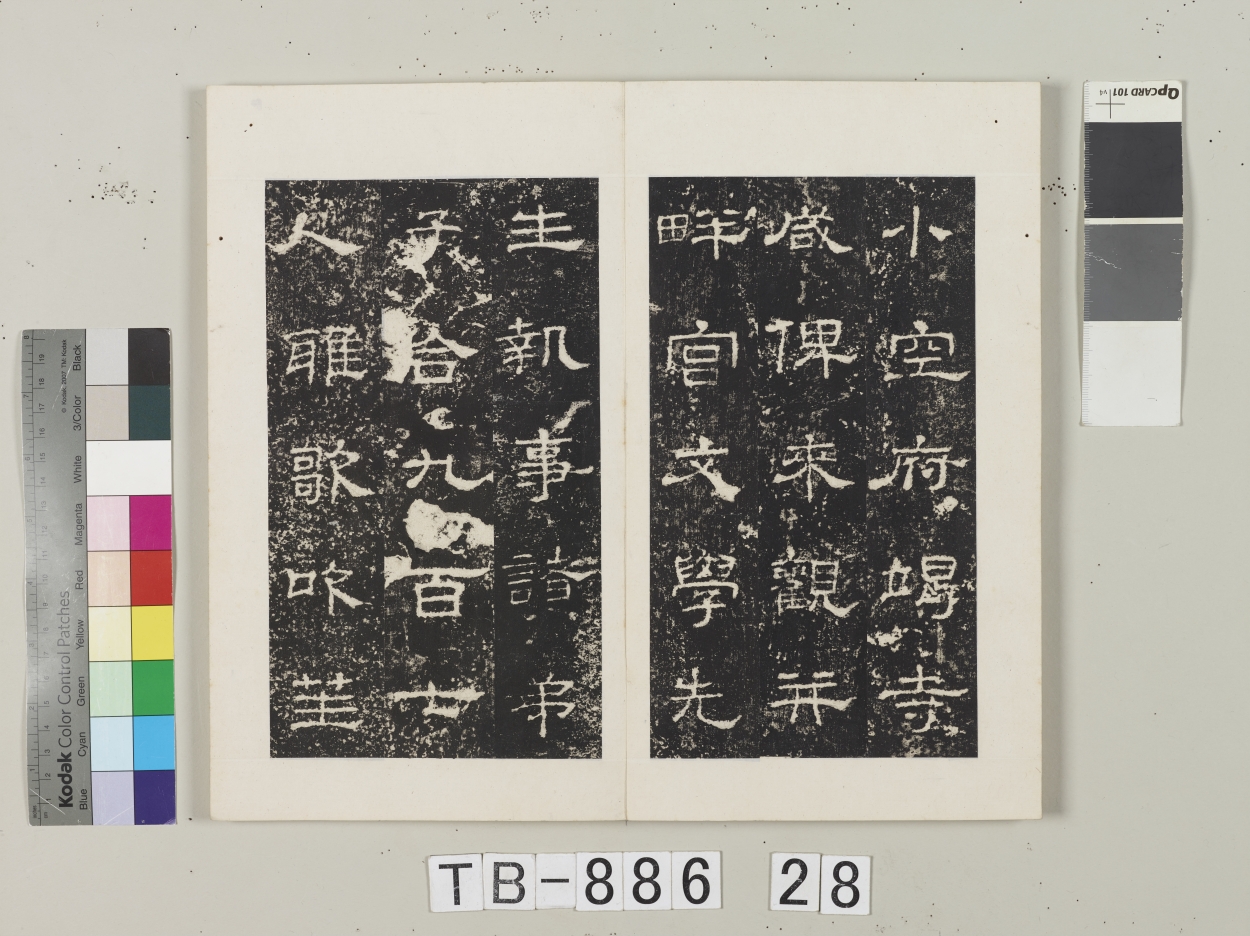 小空府竭寺
咸俾來觀并
畔宮文學先
生執事諸弟
子合九百七
人雅歌吹笙
TB-886 28
Kodak Color Control Patches
Blue Cyan Green Yellow Red Magenta White 3/Color Black
© Kodak, 2007 TM: Kodak
QPCARD 101 v4